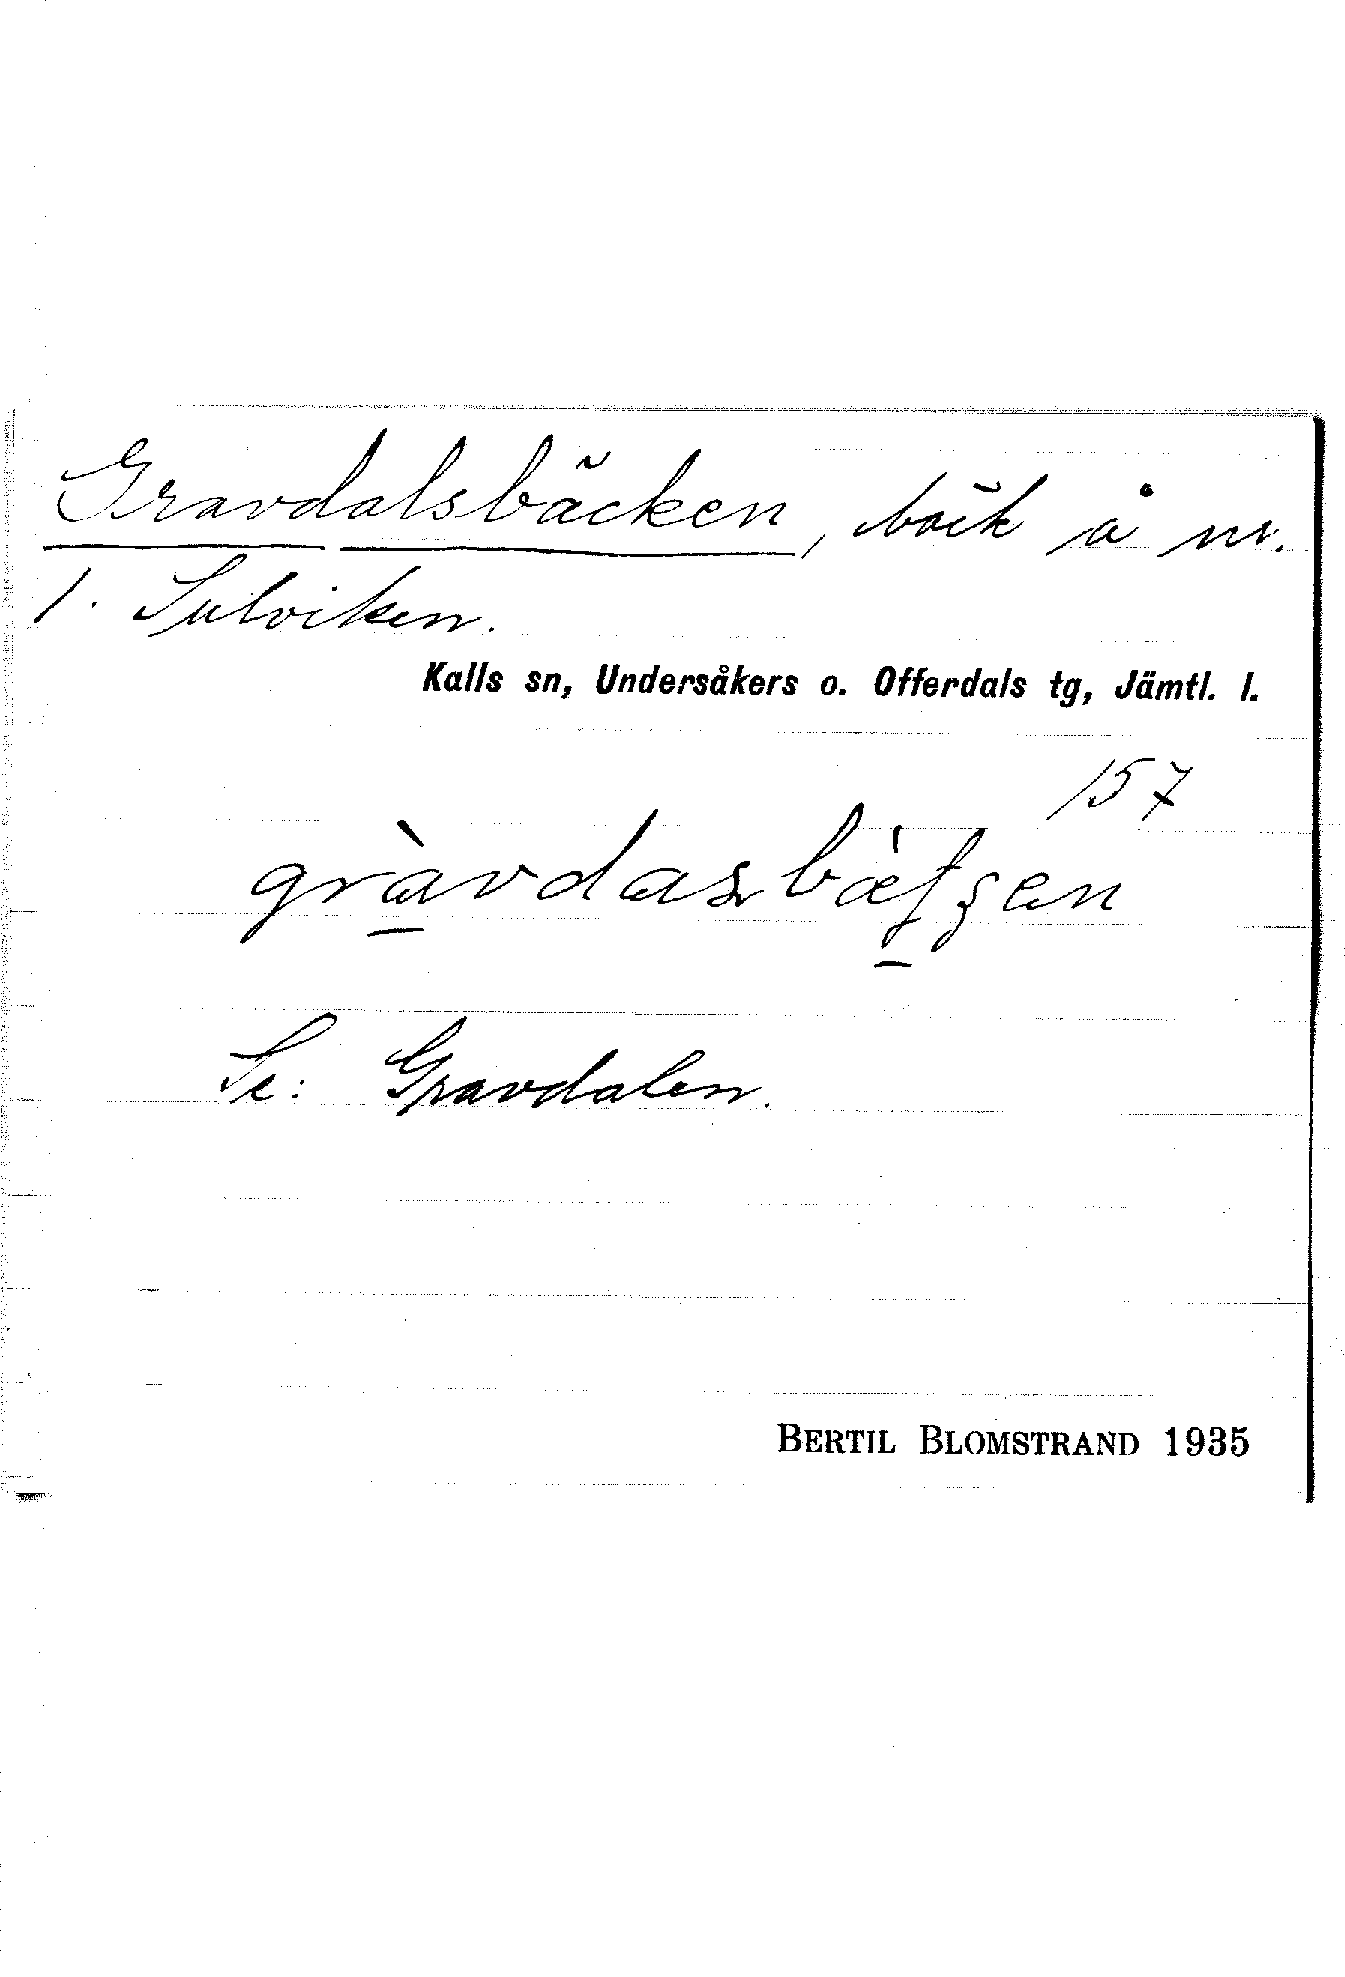 Gravdalsbäcken, bäck å nr.
1. Sulviken.
Kalls sn, Undersåkers o. Offerdals tg, Jämtl. l.
157
Se: Gravdalen.
BERTIL BLOMSTRAND 1935